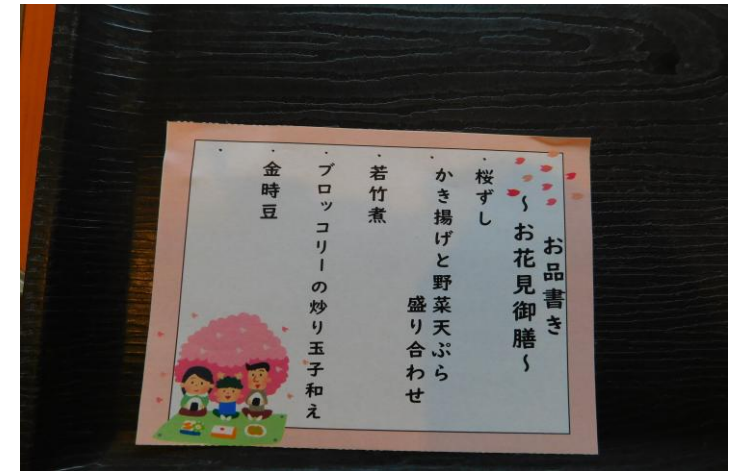 お品書き
～お花見御膳～
・桜ずし
・かき揚げと野菜天ぷら
盛り合わせ
・若竹煮
・ブロッコリーの炒り玉子和え
・金時豆
・